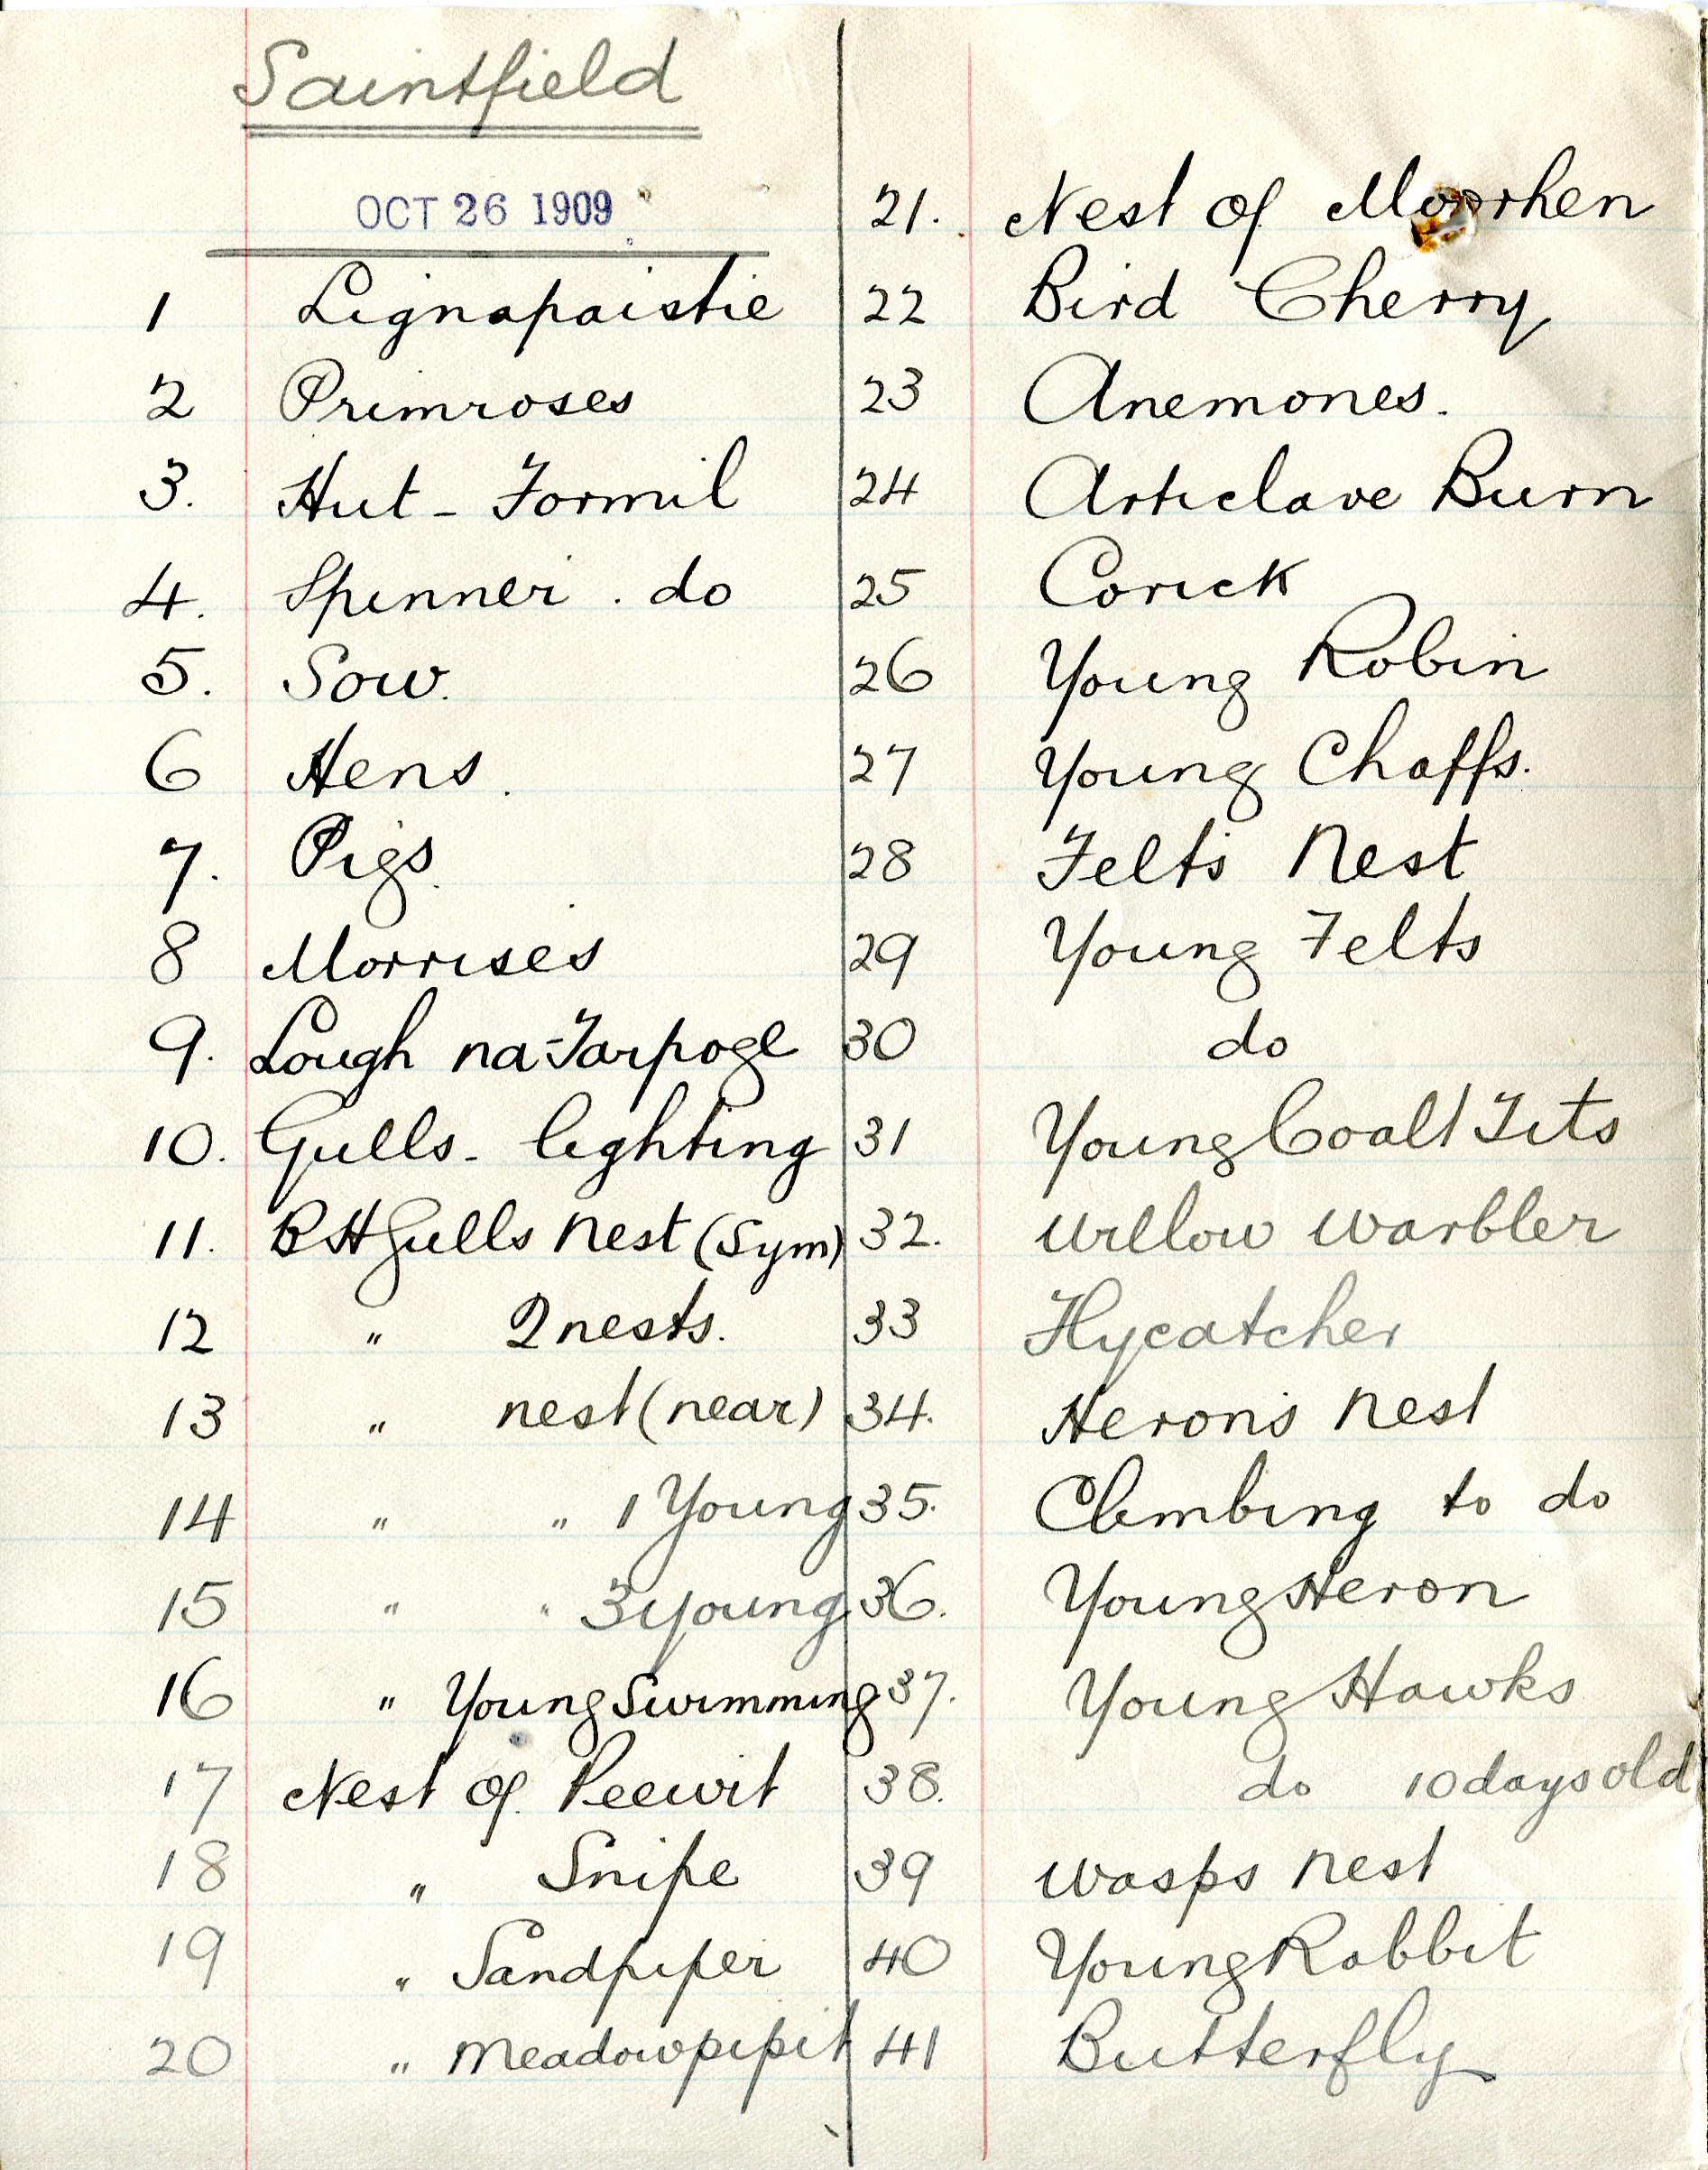 Saintfield
OCT 26 1909
1 Lignapaistie
2 Primroses
3. Hut - Formil
4. Spinner . do
5. Sow.
6 Hens.
7. Pigs.
8 Morrises
9. Lough na-Tarpoge
10. Gulls - lighting
11. B H Gulls Nest (Sym)
12 " 2 nests.
13 " nest (near)
14 " " 1 Young
15 " " 3 young
16 " Young Swimming
17 Nest of Peewit
18 " Snipe
19 " Sandpiper
20 " Meadowpipit
21. Nest of Moorhen
22 Bird Cherry
23 Anemones.
24 Articlave Burn
25 Corick
26 Young Robin
27 Young Chaffs.
28 Felts Nest
29 Young Felts
30 do
31 Young Coalt Tits
32. Willow Warbler
33 Flycatcher
34. Heron's Nest
35. Climbing to do
36. Young Heron
37. Young Hawks
38. do 10 days old
39 Wasps Nest
40 Young Rabbit
41 Butterfly